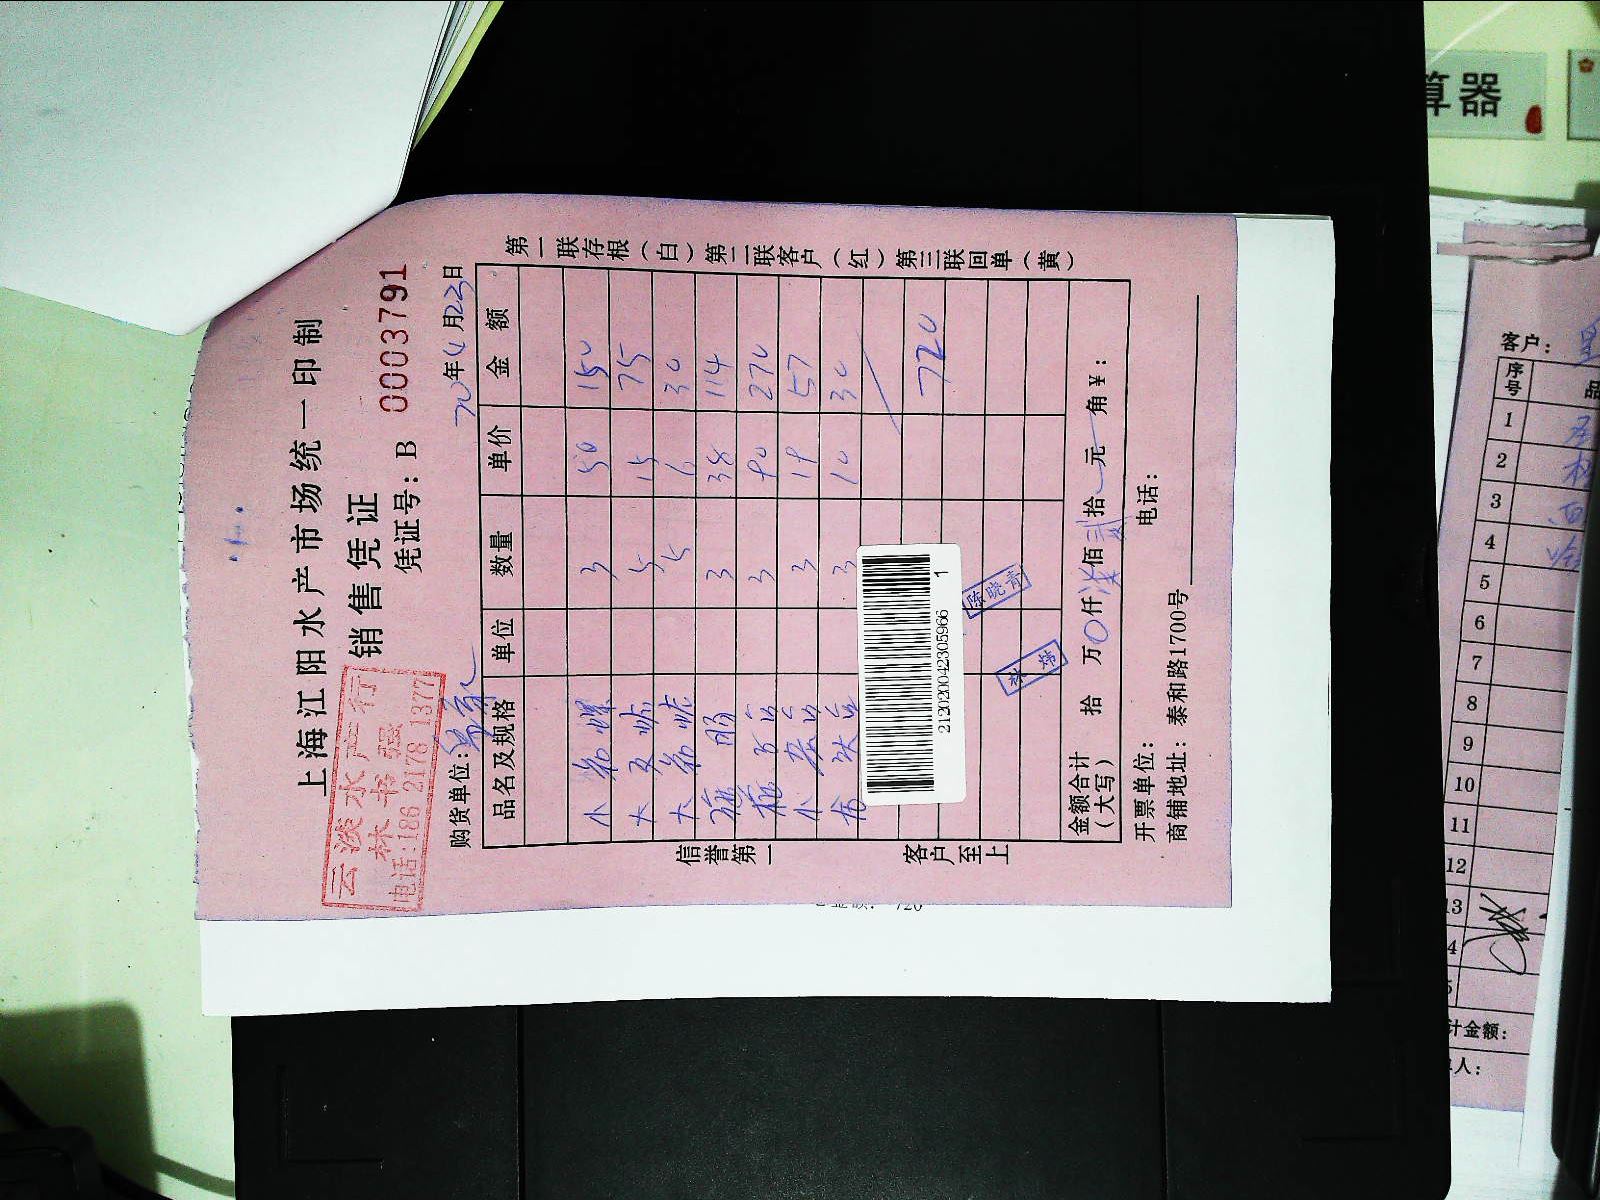 上海江阳水产市场统一印制
销售凭证
凭证号：B 0003791
云淡水产行
林书强
电话：186 2178 1377
购货单位：
20年4月23日
品名及规格 单位 数量 单价 金额
小 3 50 150
大 5 15 75
大 5 6 30
3 38 114
3 90 270
小 3 19 57
3 10 30
720
212020042305966 1
陈晓青
林炜
金额合计（大写） 拾 万 0 仟 柒 佰 贰 拾 元 角 ¥：
开票单位： 电话：
商铺地址：泰和路1700号
信誉第一 客户至上
第一联存根（白）第二联客户（红）第三联回单（黄）
720
算器
客户：
序号 品
1
2
3
4
5
6
7
8
9
10
11
12
13
4
5
计金额：
人：